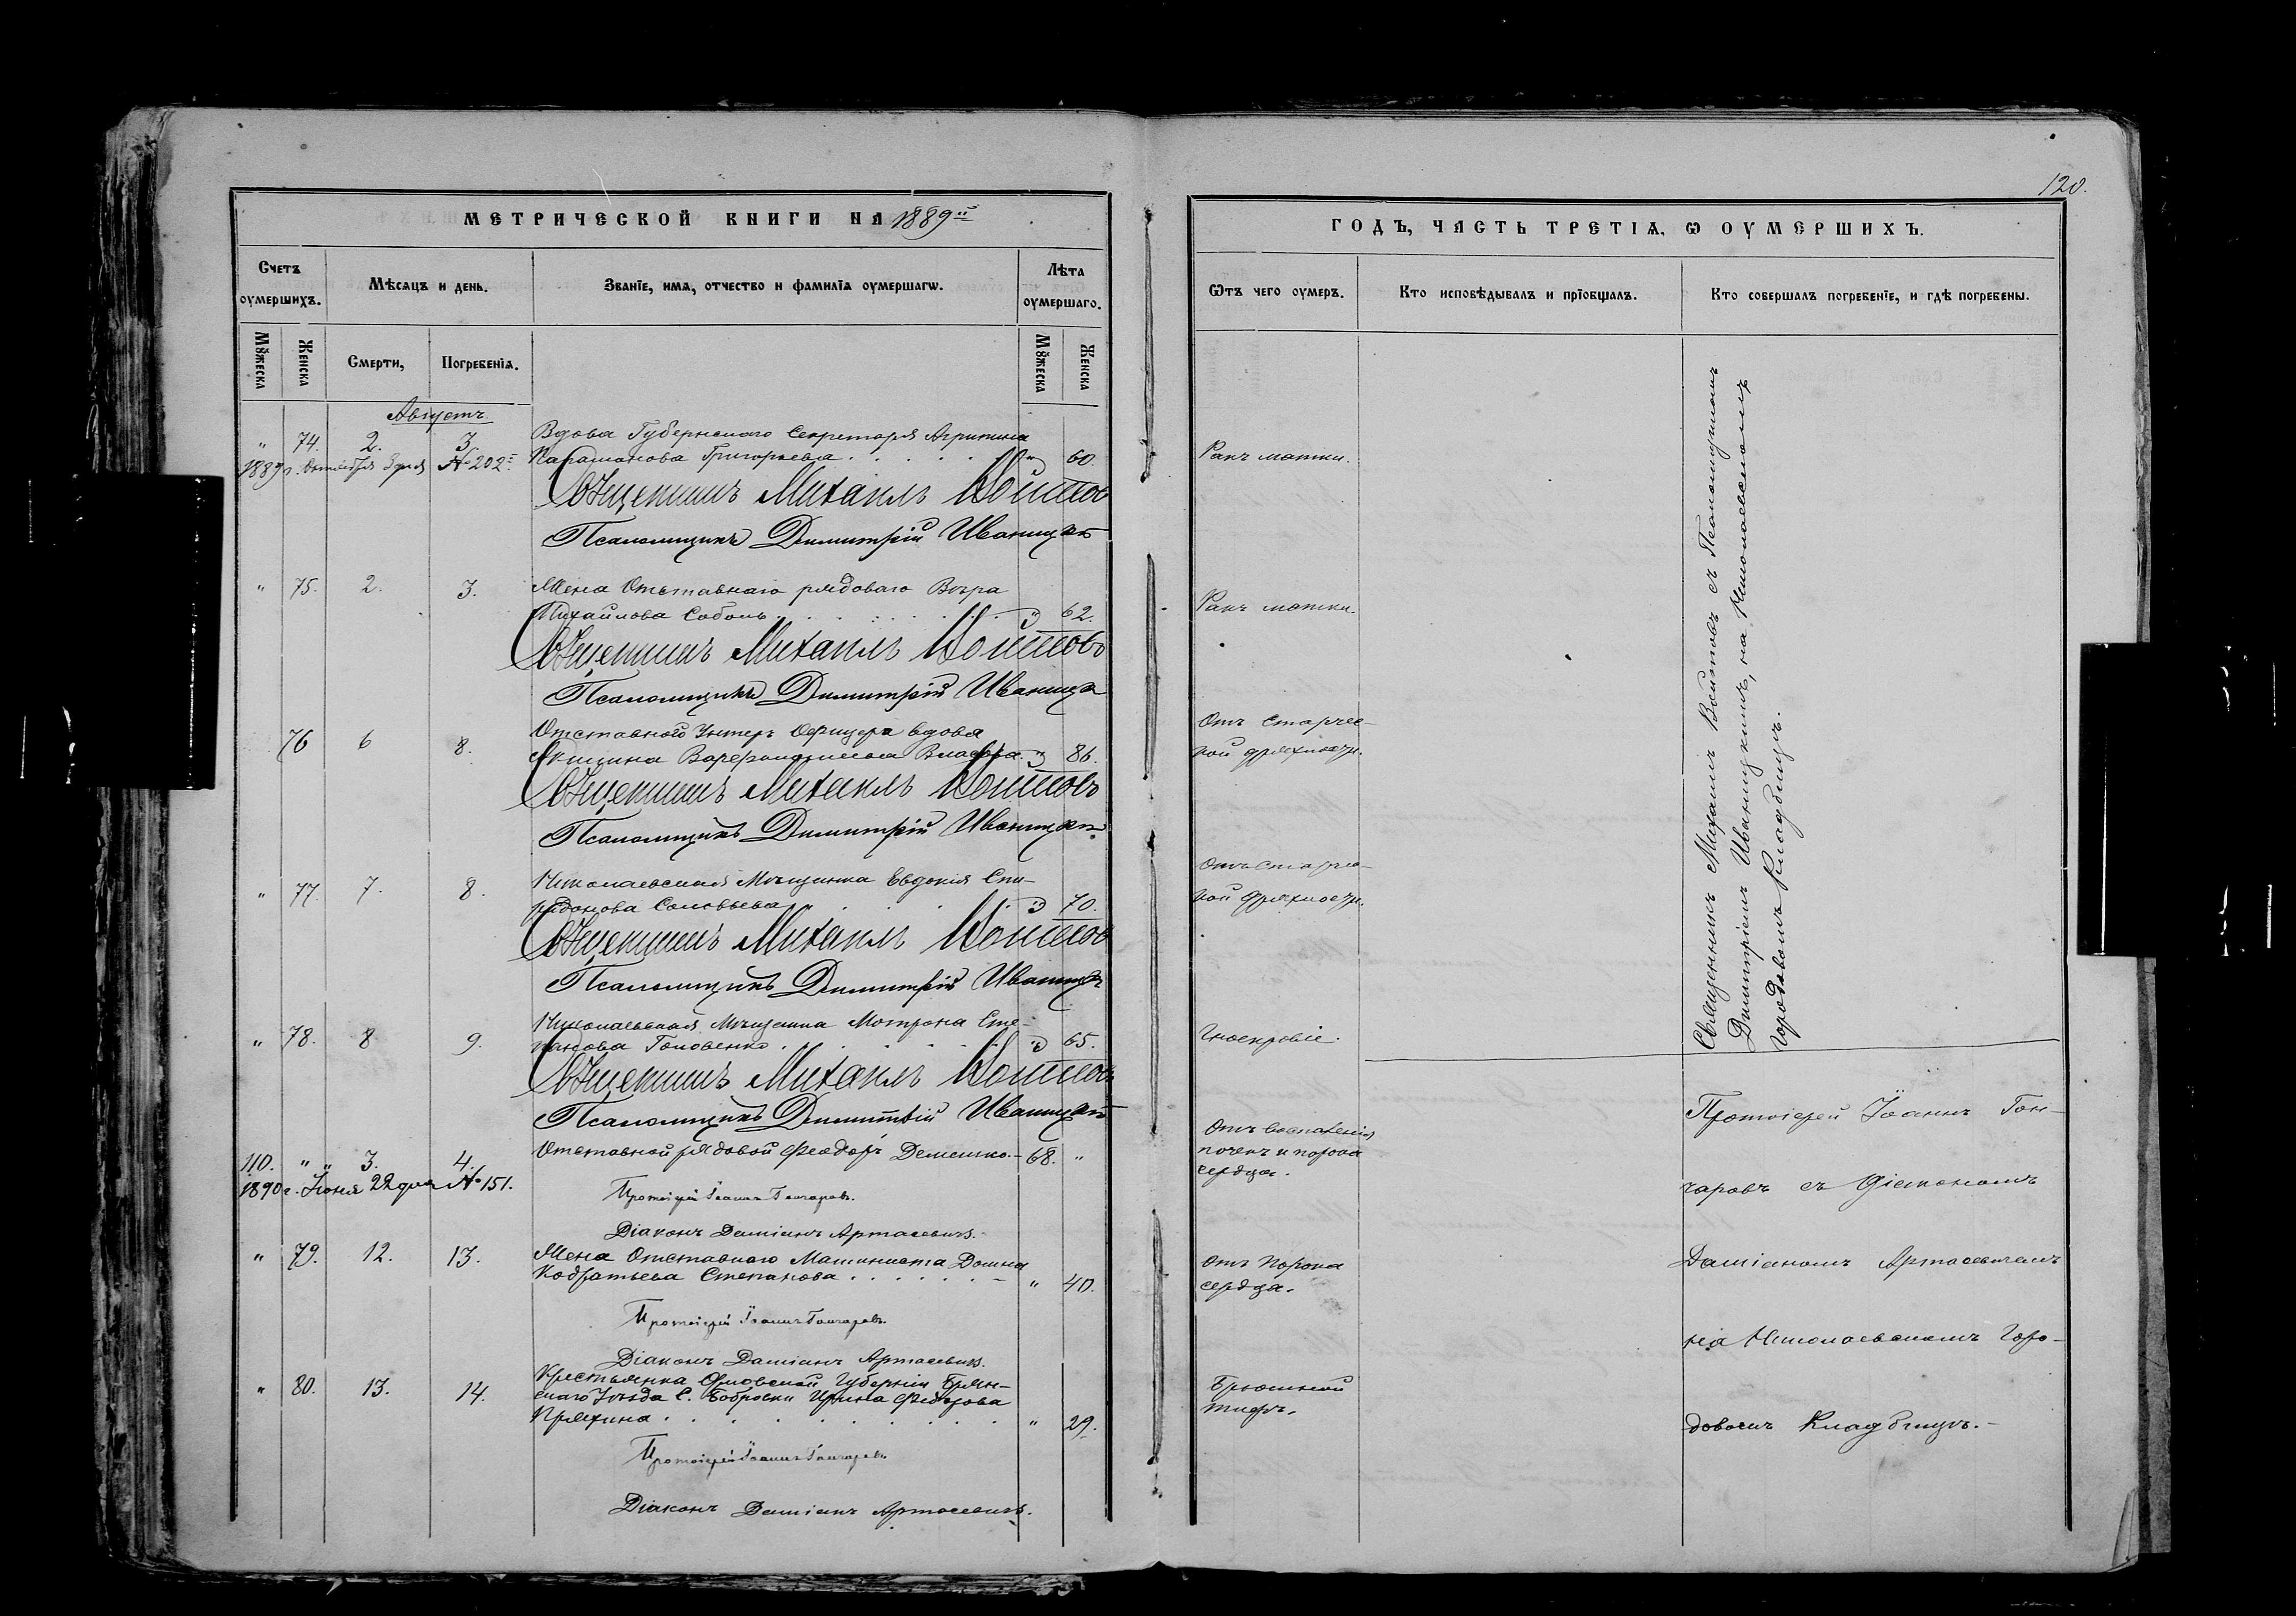 120.
МЕТРИЧЕСКОЙ КНИГИ НА 1889й
ГОДЪ, ЧАСТЬ ТРЕТІѦ, Ѡ ОУМЕРШИХЪ.
Счетъ оумершихъ.
Мѣсяцъ и день.
Званіе, имя, отчество и фамиліѧ оумершагѡ.
Лѣта оумершаго.
Ѿтъ чего оумеръ.
Кто исповѣдывалъ и пріобщалъ.
Кто совершалъ погребеніе, и гдѣ погребены.
Мꙋжеска
Женска
Смерти,
Погребенія.
Мꙋжеска
Женска
Августъ
" 74. 2. 3. Вдова Губернскаго Секретаря Агрипина
1889г. Октября 3 дня № 202 Григорьева " 60. Ракъ матки.
Священникъ Михаилъ Войтовъ
Псаломщикъ Димитрій Иваницкій
" 75. 2. 3. Жена Отставнаго рядоваго Вѣра
Михайлова Соболь " 62. Ракъ матки.
Священникъ Михаилъ Войтовъ
Псаломщикъ Димитрій Иваницкій
76 6 8. Отставного Унтеръ Офицера вдова
Власова " 86. Отъ старчес-
кой дряхлости.
Священникъ Михаилъ Войтовъ
Псаломщикъ Димитрій Иваницкій
" 77. 7. 8. Николаевская Мѣщанка Евдокія Спи-
ридонова Соловьева " 70. Отъ старчес-
кой дряхлости.
Священникъ Михаилъ Войтовъ
Псаломщикъ Димитрій Иваницкій
" 78. 8 9. Николаевская Мѣщанка Матрона Сте-
панова Головенко " 65. Гноекровіе.
Священникъ Михаилъ Войтовъ
Псаломщикъ Димитрій Иваницкій
Священникъ Михаилъ Войтовъ съ Псаломщикомъ
Димитріемъ Иваницкимъ, на Николаевскомъ
городовомъ кладбищѣ.
110. " " 3. 4. Отставной рядовой Феодоръ Демешко - 68. " Отъ воспаленія
почекъ и порока
сердца.
1890г. Іюня 22 дня № 151.
Протоіерей Іоаннъ Гончаровъ.
Діаконъ Даміанъ Артасевичъ.
" 79. 12. 13. Жена Отставнаго Машиниста Домна
Кодратьева Степанова " 40. Отъ порока
сердца.
Протоіерей Іоаннъ Гончаровъ.
Діаконъ Даміанъ Артасевичъ.
" 80. 13. 14. Крестьянка Орловской Губерніи Брян-
скаго Уѣзда С. Бобровки Ирина Федорова
Пряхина " 29. Брюшной
тифъ.
Протоіерей Іоаннъ Гончаровъ
Діаконъ Даміанъ Артасевичъ.
Протоіерей Іоаннъ Гон-
чаровъ съ Діакономъ
Даміаномъ Артасевичемъ
на Николаевскомъ горо-
довомъ кладбищѣ.-